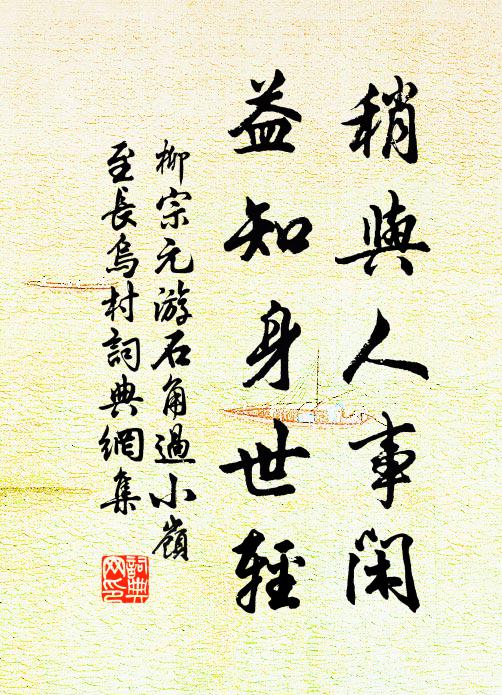 稍與人事閑
益知身世輕
柳宗元游石角過小嶺
至長烏村詞典網集
詞典
网印